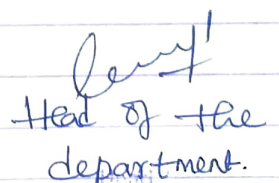 Head of the
department.